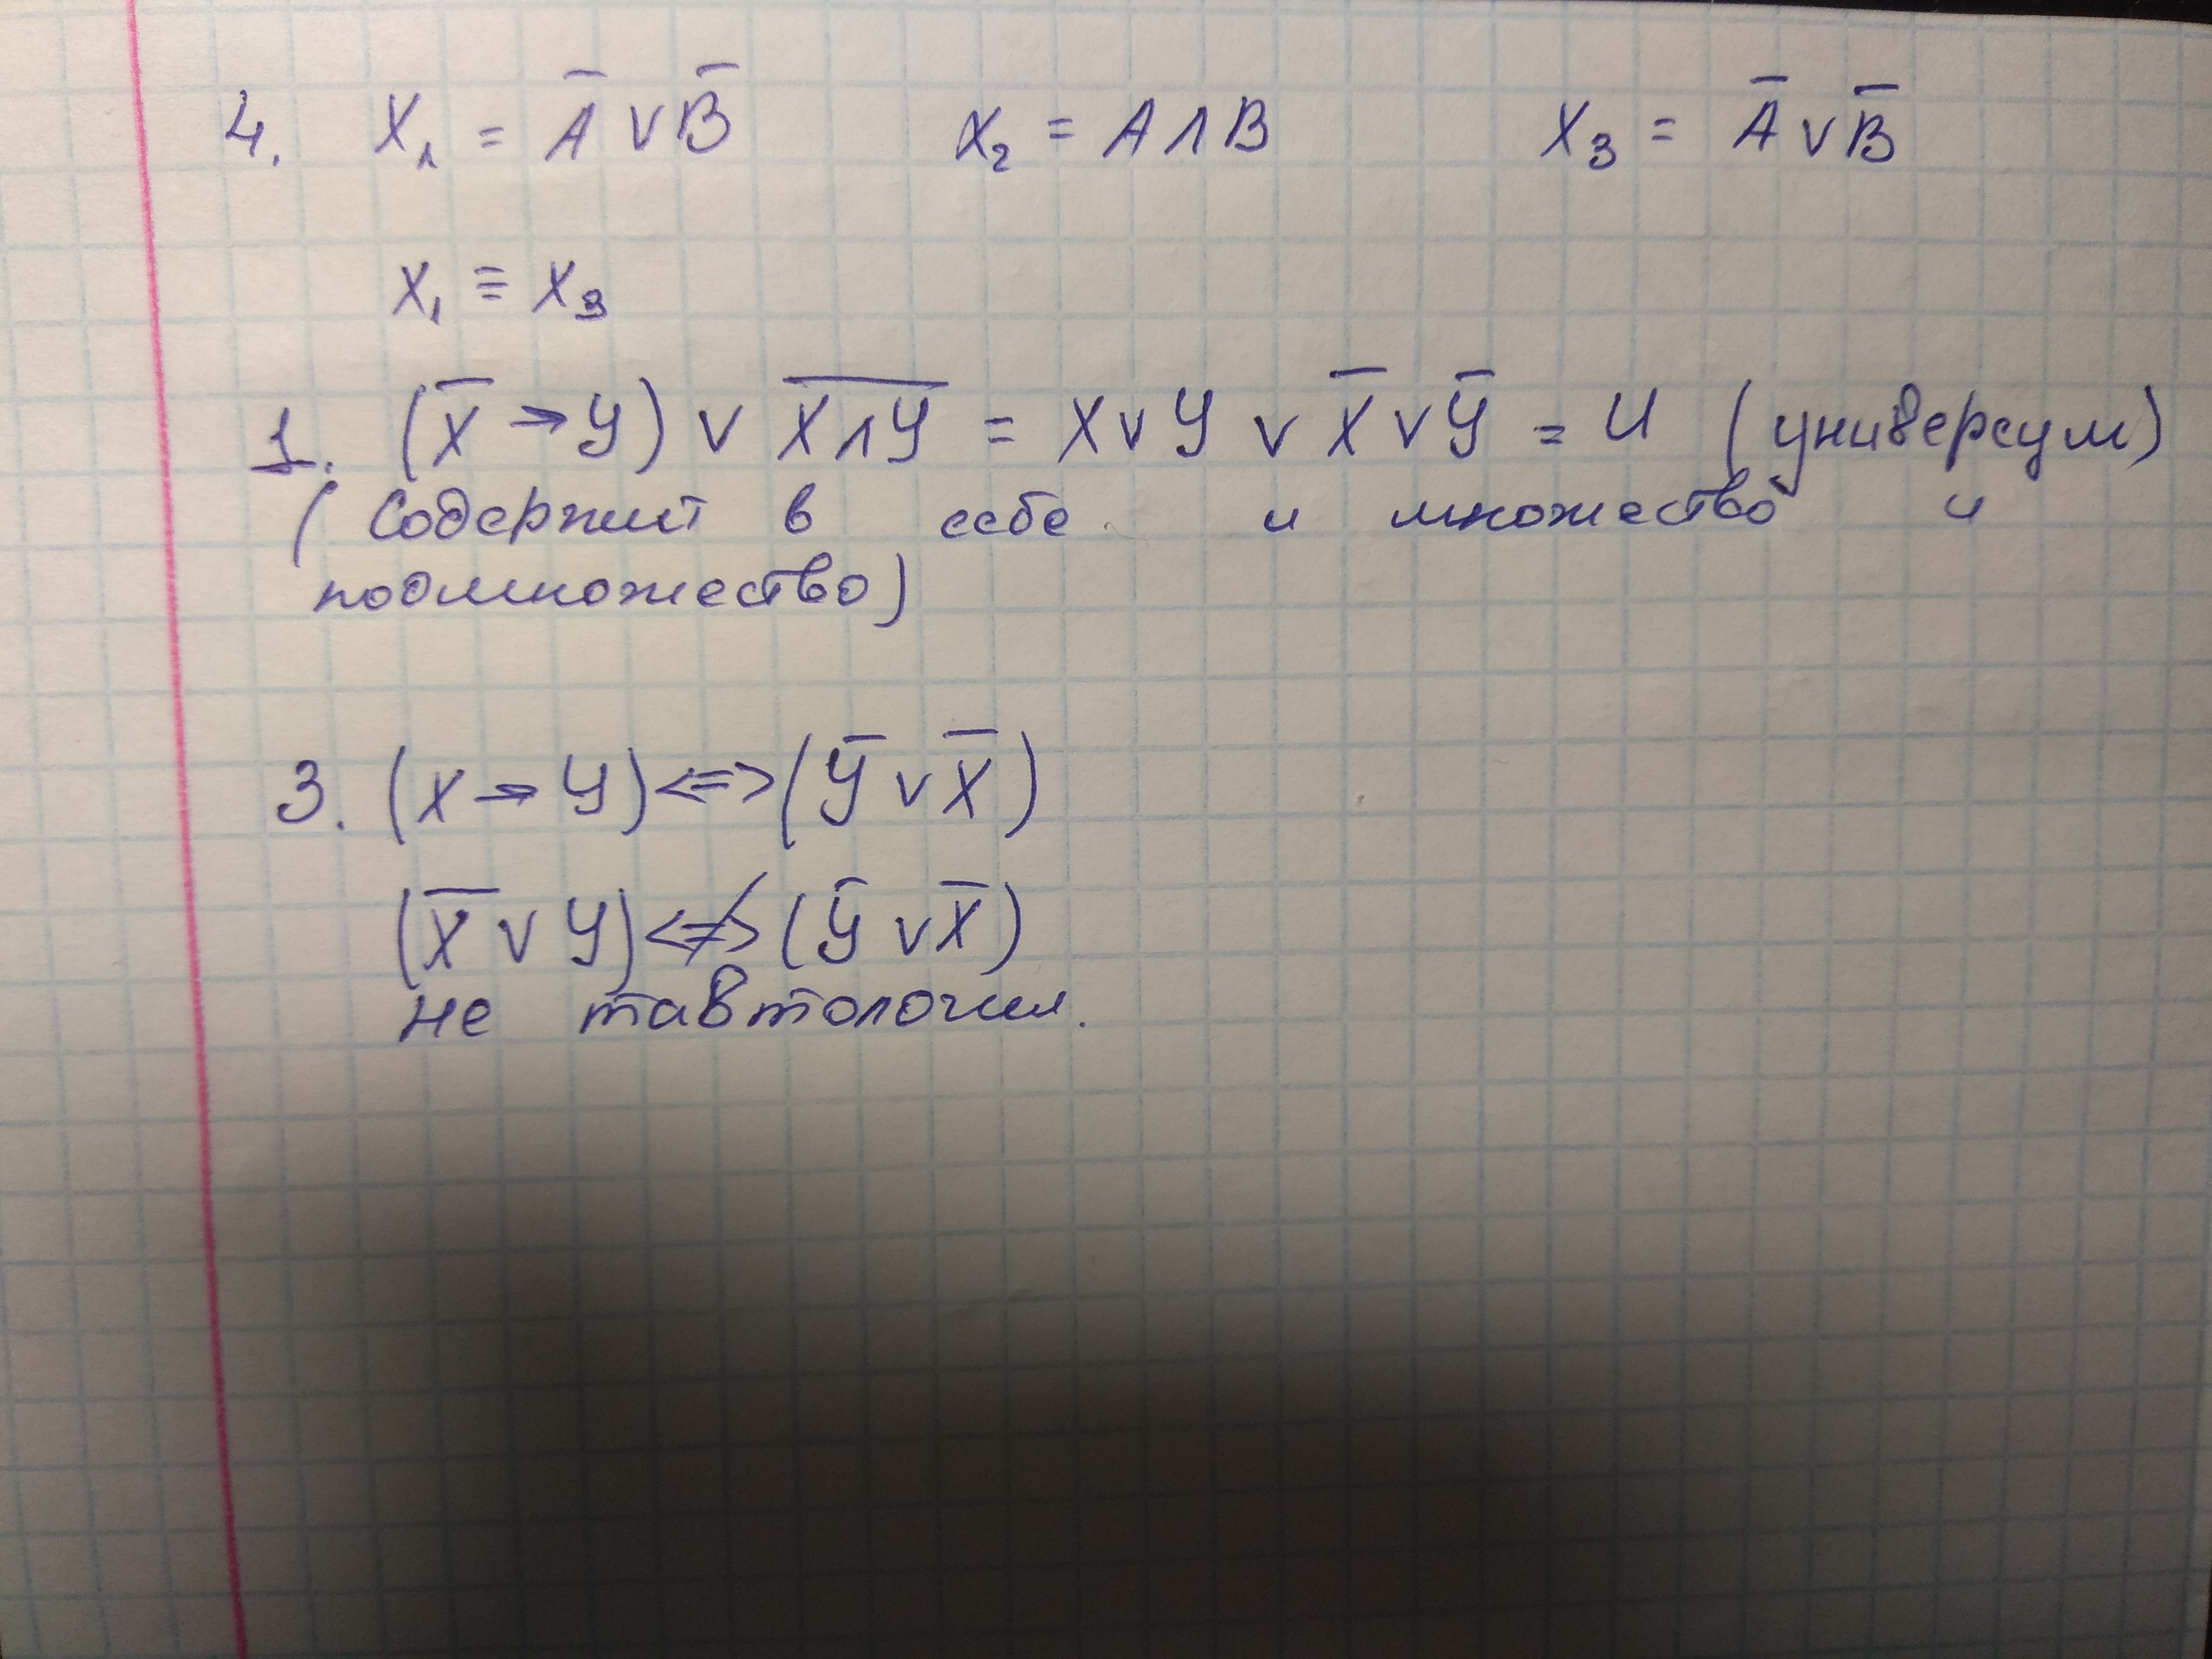 4. X₁ = A̅ ∨ B̅   X₂ = A ∧ B   X₃ = A̅ ∨ B̅
X₁ ≡ X₃
1. (X̅ → У) ∨ X̅∧̅У̅ = X ∨ У ∨ X̅ ∨ У̅ = U (универсум)
(Содержит в себе и множество и
подмножество)
3. (X → У) <=> (У̅ ∨ X̅)
(X̅ ∨ У) <≠> (У̅ ∨ X̅)
не тавтология.